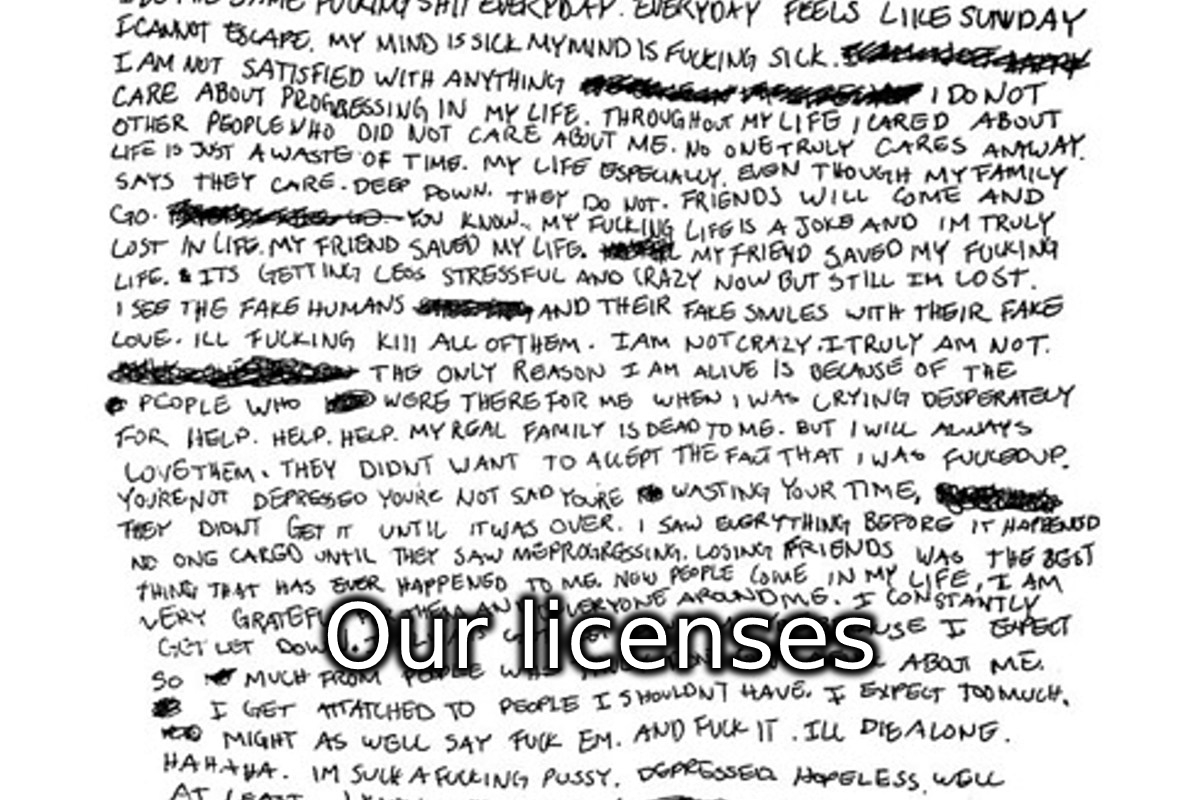 I DO THE SAME FUCKING SHIT EVERYDAY. EVERYDAY FEELS LIKE SUNDAY
I CANNOT ESCAPE. MY MIND IS SICK MY MIND IS FUCKING SICK.
I AM NOT SATISFIED WITH ANYTHING I DO NOT
CARE ABOUT PROGRESSING IN MY LIFE. THROUGHOUT MY LIFE I CARED ABOUT
OTHER PEOPLE WHO DID NOT CARE ABOUT ME. NO ONE TRULY CARES ANYWAY.
LIFE IS JUST A WASTE OF TIME. MY LIFE ESPECIALLY. EVEN THOUGH MY FAMILY
SAYS THEY CARE. DEEP DOWN. THEY DO NOT. FRIENDS WILL COME AND
GO. YOU KNOW. MY FUCKING LIFE IS A JOKE AND IM TRULY
LOST IN LIFE. MY FRIEND SAVED MY LIFE. MY FRIEND SAVED MY FUCKING
LIFE. & ITS GETTING LESS STRESSFUL AND CRAZY NOW BUT STILL IM LOST.
I SEE THE FAKE HUMANS AND THEIR FAKE SMILES WITH THEIR FAKE
LOVE. ILL FUCKING KILL ALL OF THEM. I AM NOT CRAZY. I TRULY AM NOT.
THE ONLY REASON I AM ALIVE IS BECAUSE OF THE
PEOPLE WHO WERE THERE FOR ME WHEN I WAS CRYING DESPERATELY
FOR HELP. HELP. HELP. MY REAL FAMILY IS DEAD TO ME. BUT I WILL ALWAYS
LOVE THEM. THEY DIDNT WANT TO ACCEPT THE FACT THAT I WAS FUCKED UP.
YOU'RE NOT DEPRESSED YOU'RE NOT SAD YOU'RE WASTING YOUR TIME,
THEY DIDNT GET IT UNTIL IT WAS OVER. I SAW EVERYTHING BEFORE IT HAPPENED
NO ONE CARED UNTIL THEY SAW ME PROGRESSING. LOSING FRIENDS WAS THE BEST
THING THAT HAS EVER HAPPENED TO ME. NOW PEOPLE COME IN MY LIFE, I AM
VERY GRATEFUL THEM AN EVERYONE AROUND ME. I CONSTANTLY
GET LET DOWN. I EXPECT
Our licenses
SO MUCH FROM PEOPLE ABOUT ME.
I GET ATTATCHED TO PEOPLE I SHOULDN'T HAVE. I EXPECT TOO MUCH.
MIGHT AS WELL SAY FUCK EM. AND FUCK IT. ILL DIE ALONE.
HAHAHA. IM SUCH A FUCKING PUSSY. DEPRESSED HOPELESS. WELL
AT LEAST I